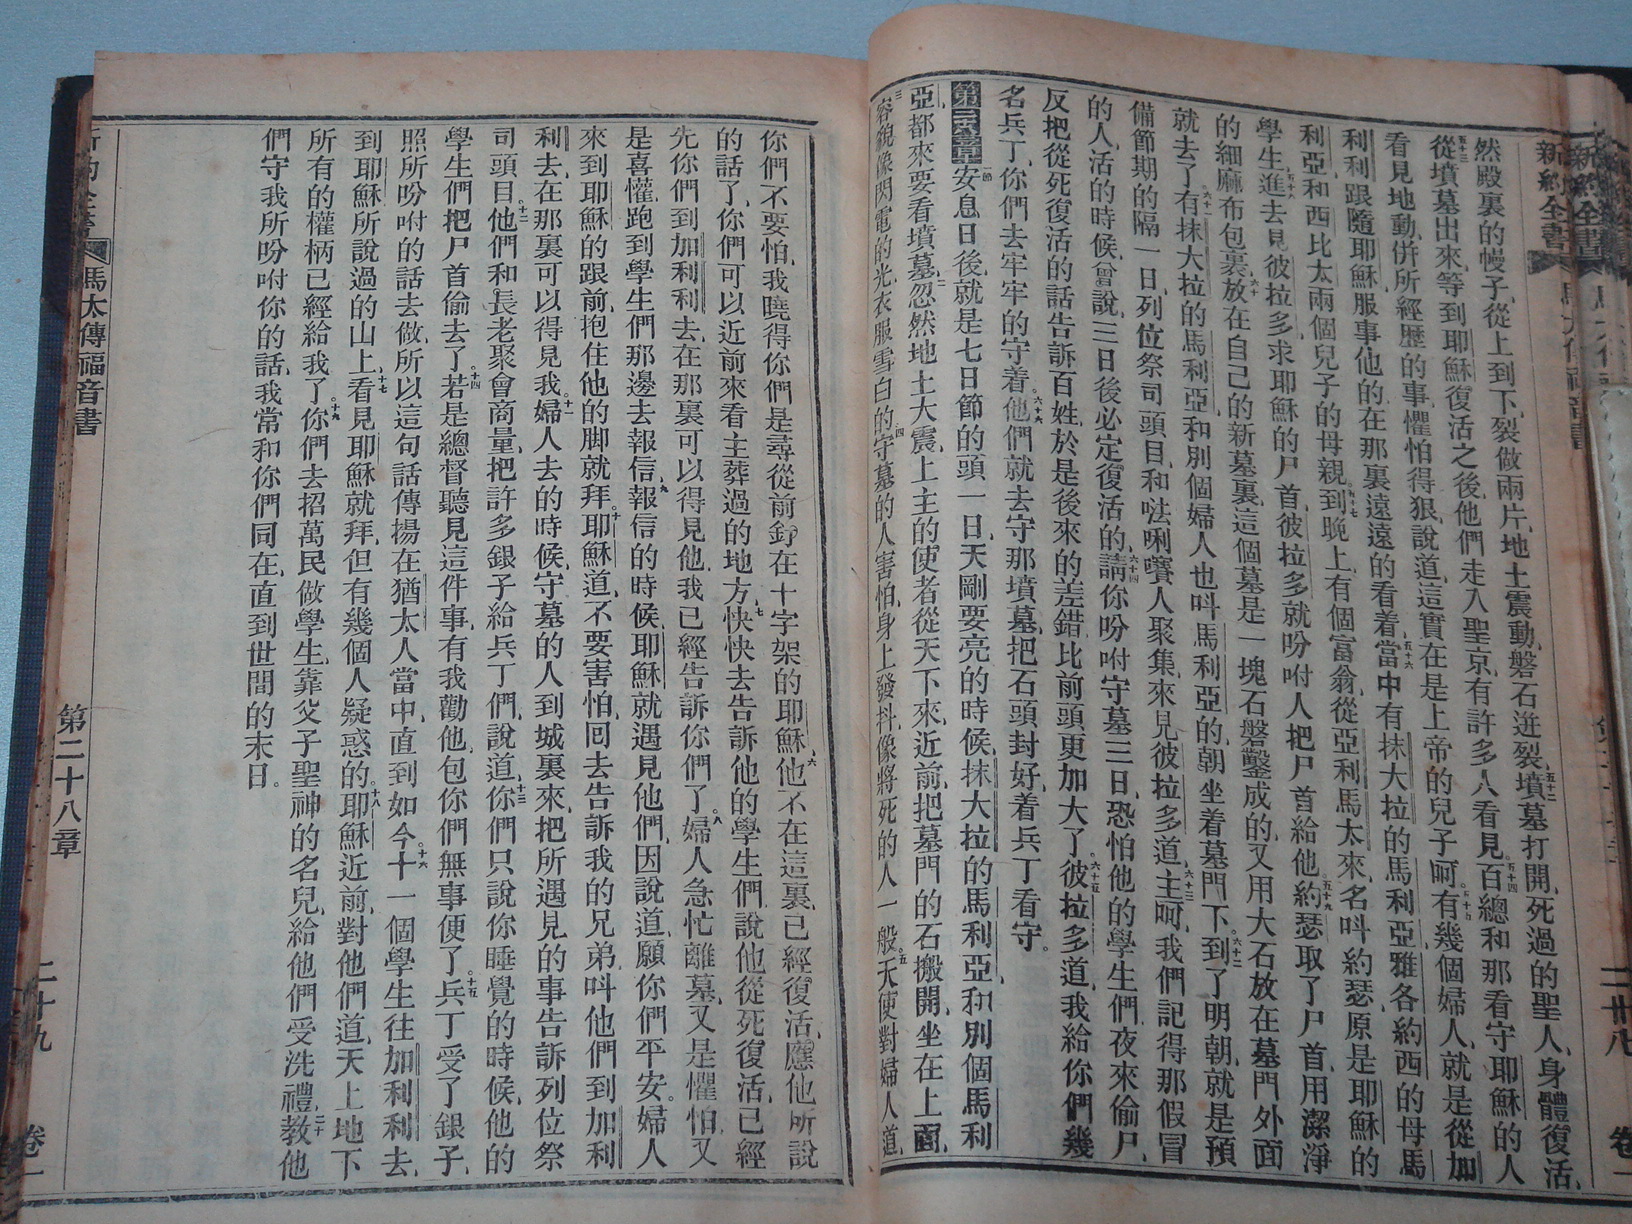 新約全書
然殿裏的慢子、從上到下、裂做兩片、地土震動、磐石迸裂、五十二墳墓打開、死過的聖人、身體復活、
五十三從墳墓出來、等到耶穌復活之後、他們走入聖京、有許多人看見、五十四百總和那看守耶穌的人
看見地動、併所經歷的事、懼怕得狠、說道、這實在是上帝的兒子呵。五十五有幾個婦人、就是從加
利利跟隨耶穌服事他的、在那裏遠遠的看着、五十六當中有抹大拉的馬利亞、雅各約西的母馬
利亞、和西比太兩個兒子的母親。五十七到晚上、有個富翁、從亞利馬太來、名呌約瑟、原是耶穌的
學生、五十八進去見彼拉多、求耶穌的尸首、彼拉多就吩咐人把尸首給他。五十九約瑟取了尸首、用潔淨
的細麻布包裹、六十放在自己的新墓裏、這個墓是一塊石磐鑿成的、又用大石放在墓門外面、
就去了。六十一有抹大拉的馬利亞、和別個婦人也呌馬利亞的、朝坐着墓門下。六十二到了明朝、就是預
備節期的隔一日、列位祭司頭目、和㗫唎㘔人聚集、來見彼拉多道、六十三主呵、我們記得那假冒
的人、活的時候、曾說、三日後必定復活的、六十四請你吩咐守墓三日、恐怕他的學生們夜來偷尸、
反把從死復活的話告訴百姓、於是後來的差錯比前頭更加大了。六十五彼拉多道、我給你們幾
名兵丁、你們去牢牢的守着。六十六他們就去守那墳墓、把石頭封好、着兵丁看守。
第二十八章一節安息日後、就是七日節的頭一日、天剛要亮的時候、抹大拉的馬利亞、和別個馬利
亞、都來要看墳墓、二忽然地土大震、上主的使者從天下來、近前、把墓門的石搬開、坐在上面、
三容貌像閃電的光、衣服雪白的、四守墓的人害怕、身上發抖、像將死的人一般。五天使對婦人道、
你們不要怕、我曉得你們是尋從前釘在十字架的耶穌、六他不在這裏、已經復活、應他所說
的話了、你們可以近前來看主葬過的地方、七快快去告訴他的學生們、說他從死復活、已經
先你們到加利利去、在那裏可以得見他、我已經告訴你們了。八婦人急忙離墓、又是懼怕、又
是喜懽、跑到學生們那邊去報信、九報信的時候、耶穌就遇見他們、因說道、願你們平安。婦人
來到耶穌的跟前、抱住他的脚就拜。十耶穌道、不要害怕、回去告訴我的兄弟、呌他們到加利
利去、在那裏可以得見我。十一婦人去的時候、守墓的人到城裏來、把所遇見的事告訴列位祭
司頭目、十二他們和長老聚會商量、把許多銀子給兵丁們、說道、十三你們只說你睡覺的時候、他的
學生們把尸首偷去了。十四若是總督聽見這件事、有我勸他、包你們無事便了。十五兵丁受了銀子、
照所吩咐的話去做、所以這句話傳揚在猶太人當中、直到如今。十六十一個學生往加利利去、
到耶穌所說過的山上、十七看見耶穌就拜、但有幾個人疑惑的。十八耶穌近前、對他們道、天上地下
所有的權柄已經給我了。十九你們去招萬民做學生、靠父子聖神的名兒、給他們受洗禮、二十教他
們守我所吩咐你的話、我常和你們同在、直到世間的末日。
馬太傳福音書 第二十八章 二十九 卷一